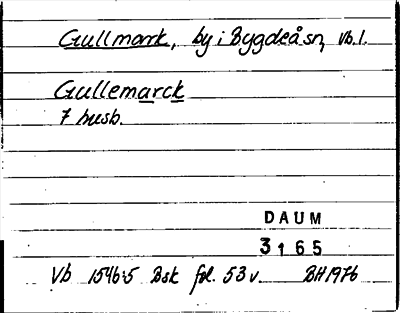 Gullmark, by i Bygdeå sn, Vb. l.
Gullemarck
7 husb.
DAUM
3165
Vb 1546:5 Bsk fol. 53 v. BH 1976